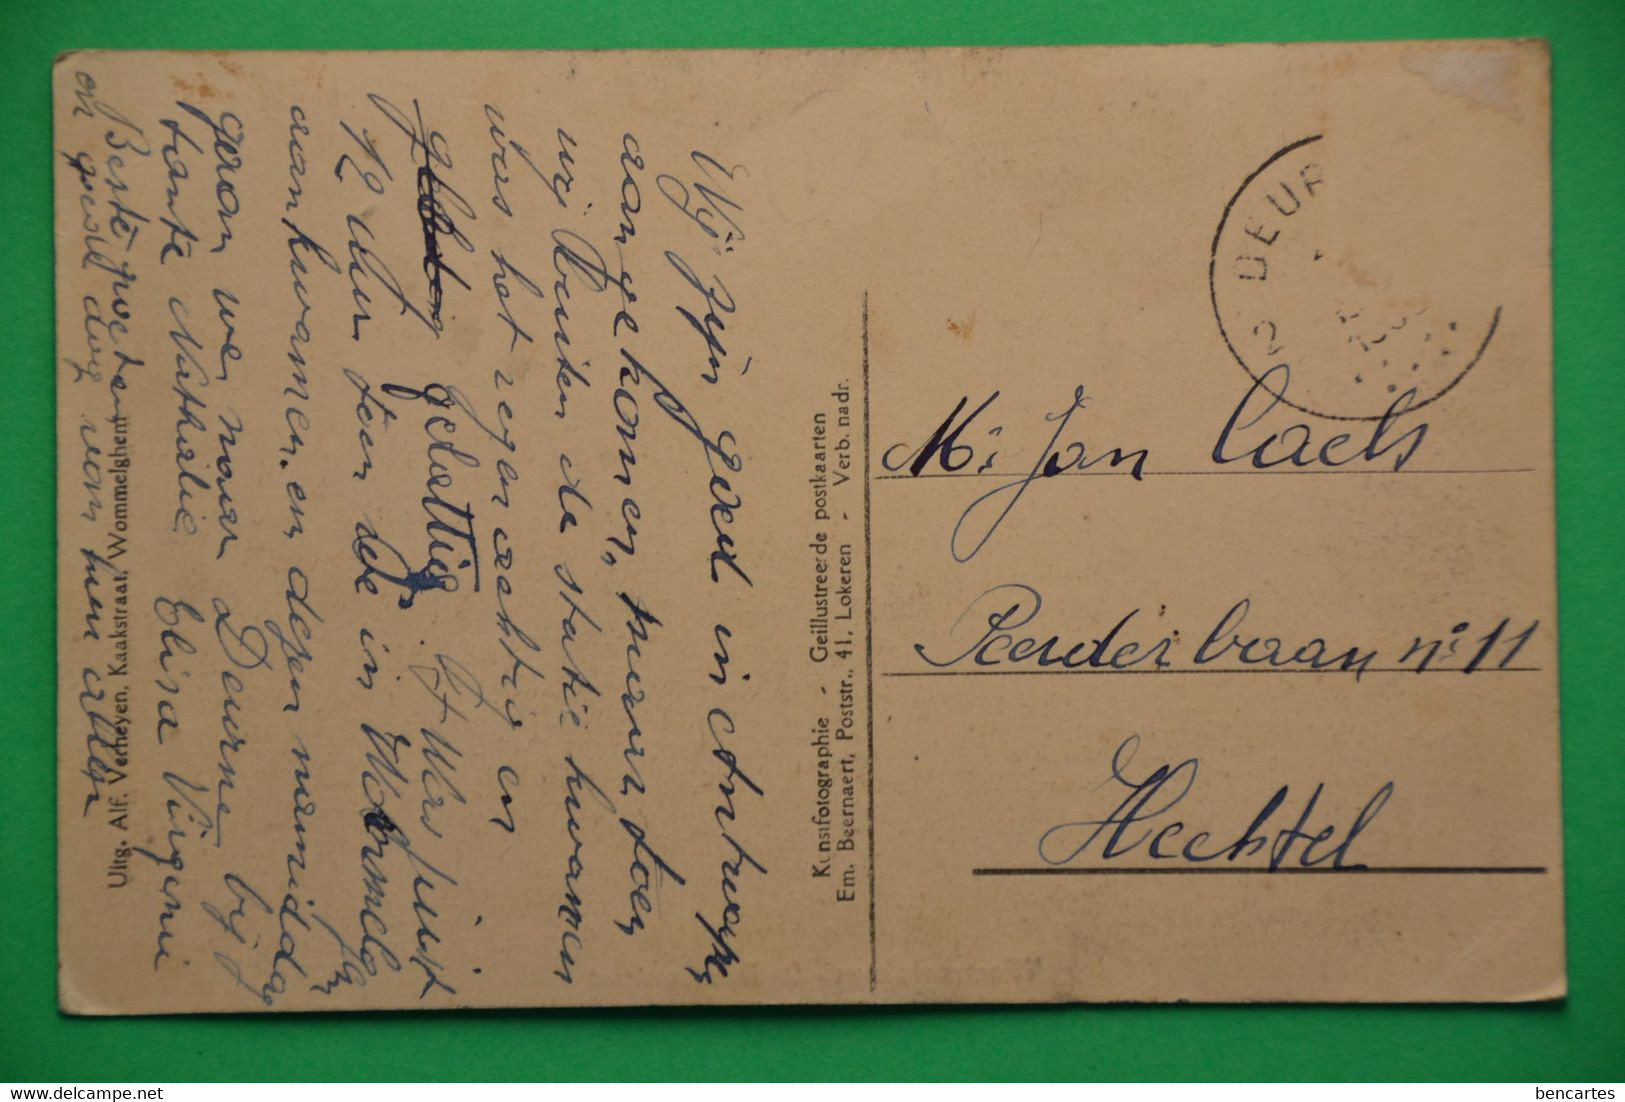 Wij zijn goed in Antwerpen
aangekomen, maar toen
wij buiten de statie kwamen
was het regenachtig en
gelettig. Het was juist
12 uur toen we in Wommelgem
aankwamen. en dezen namiddag
gaan we naar Deurne bij
tante Nathalie Elisa Virginie
Beste groeten
en goede dag van hun allen
Uitg. Alf. Verheyen, Kaakstraat, Wommelghem
Kunstfotographie - Geïllustreerde postkaarten
Em. Beernaert, Poststr., 41, Lokeren - Verb. nadr.
2 DEUR
Mr Jan Caels
Peerderbaan n° 11
Hechtel
bencartes